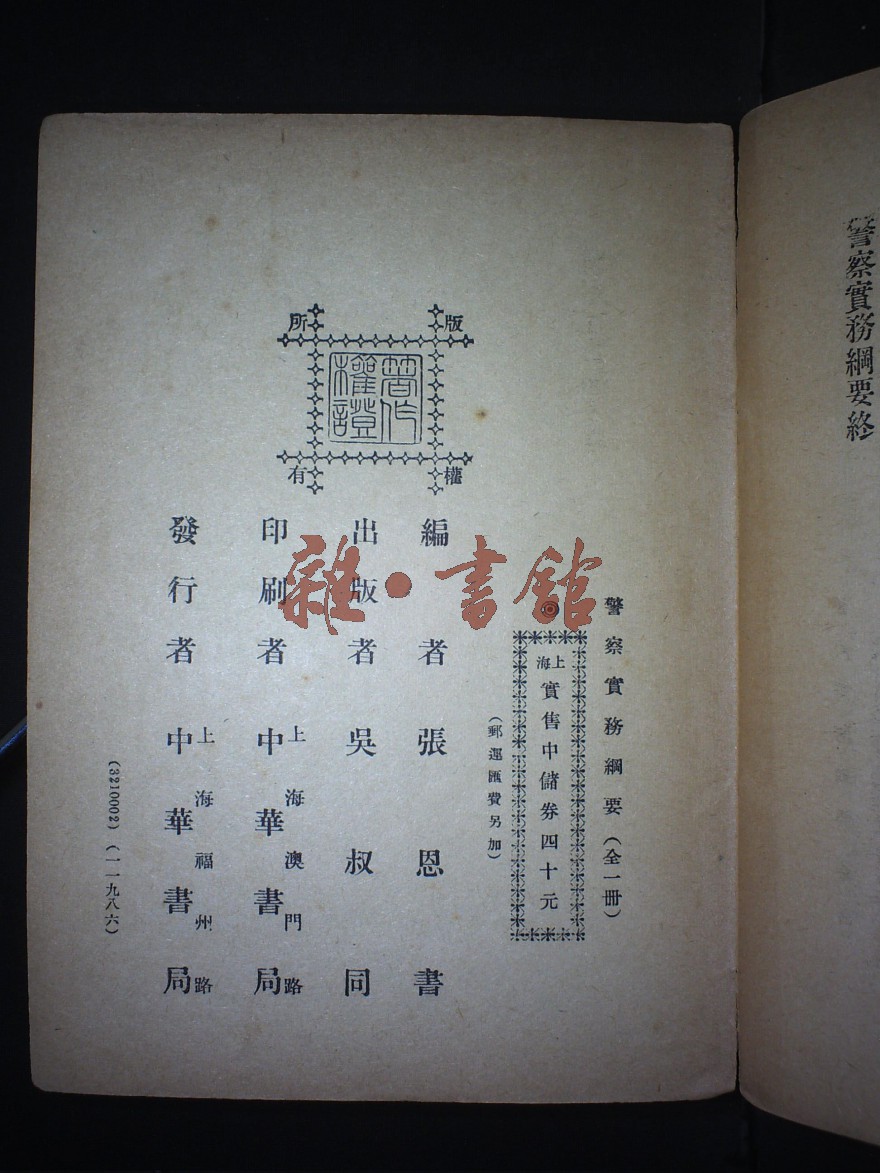 警察實務綱要終
警察實務綱要（全一冊）
上海
實售中儲券四十元
（郵運匯費另加）
版權所有
著作權證
編者張恩書
出版者吳叔同
印刷者上海澳門路中華書局
發行者上海福州路中華書局
（3210002）（一一九八六）
雜·書館